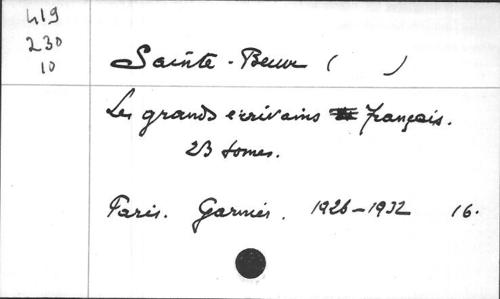 419
230
10
Sainte-Beuve ( )
Les grands écrivains français.
23 tomes.
Paris. Garnier. 1926-1932 16.